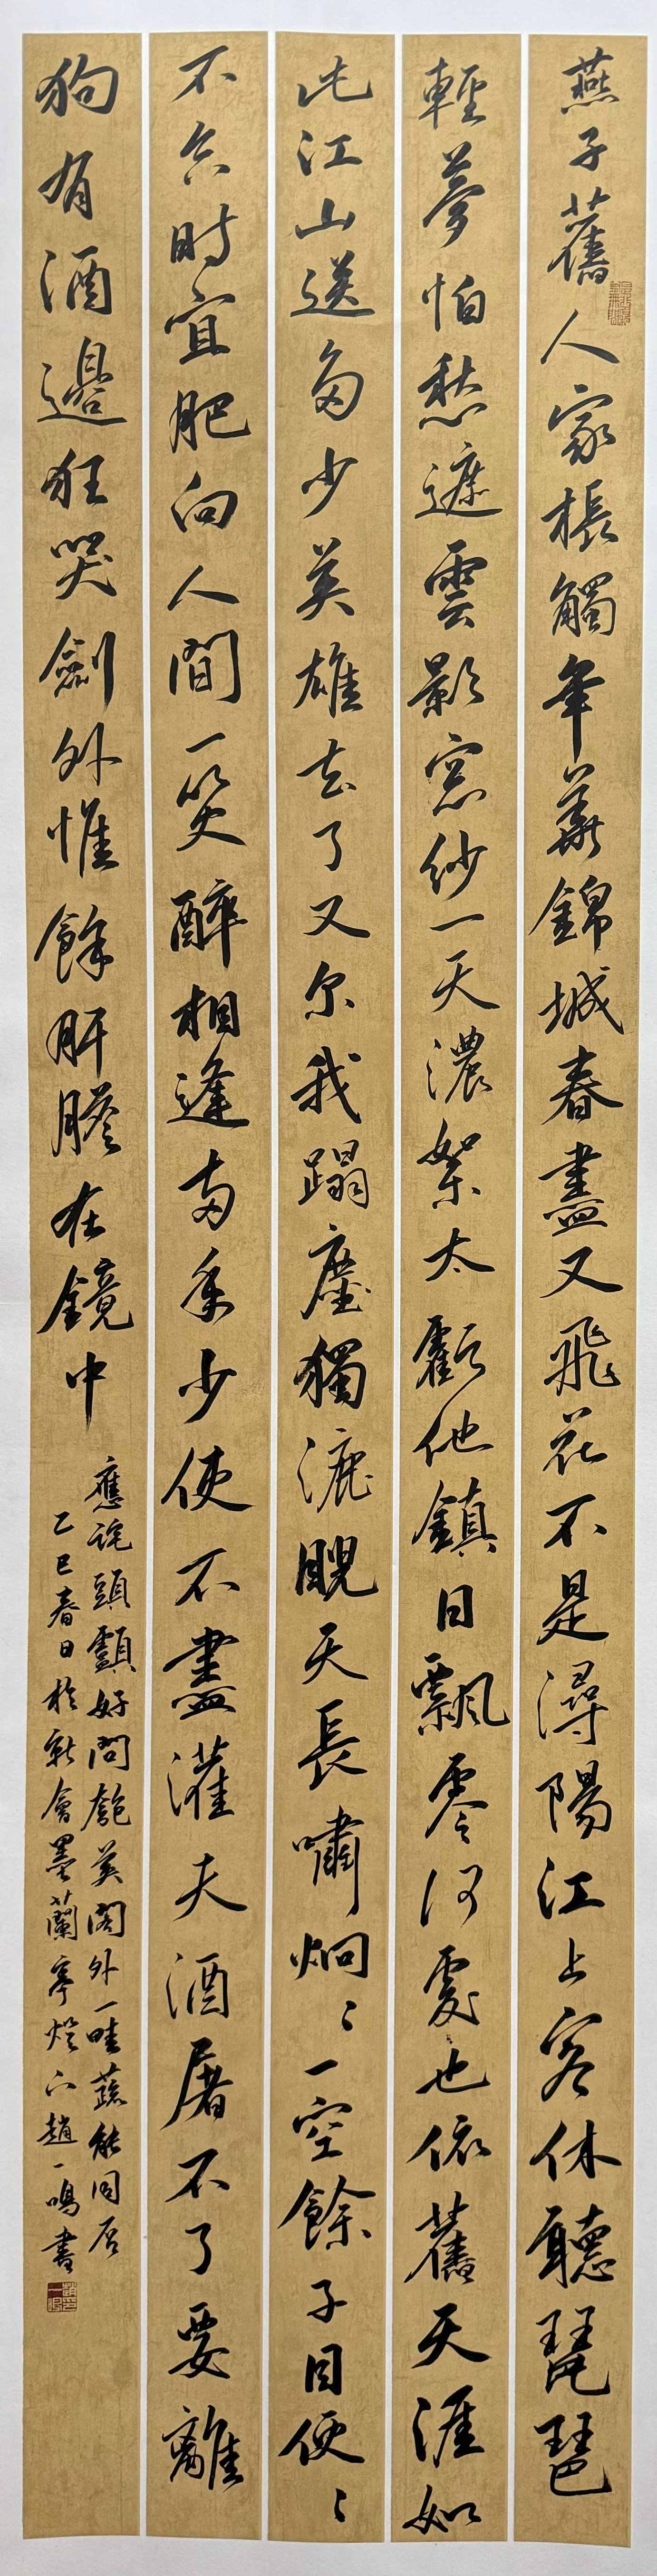 燕子舊人家棖觸年華錦城春盡又飛花不是潯陽江上客休聽琵琶
輕夢怕愁遮雲影窓紗一天濃絮太虧他鎮日飄零何處也依舊天涯如
此江山送多少英雄去了又尔我蹋塵獨漉睨天長嘯炯〻一空餘子目便〻
不合時宜肥向人間一笑醉相逢兩年少使不盡灌夫酒屠不了要離
狗有酒邊狂哭劍外惟餘肝膽在鏡中
應詫頭顱好問匏黃閣外一畦蔬能同否
乙巳春日於新會墨蘭亭燈下趙一鳴書